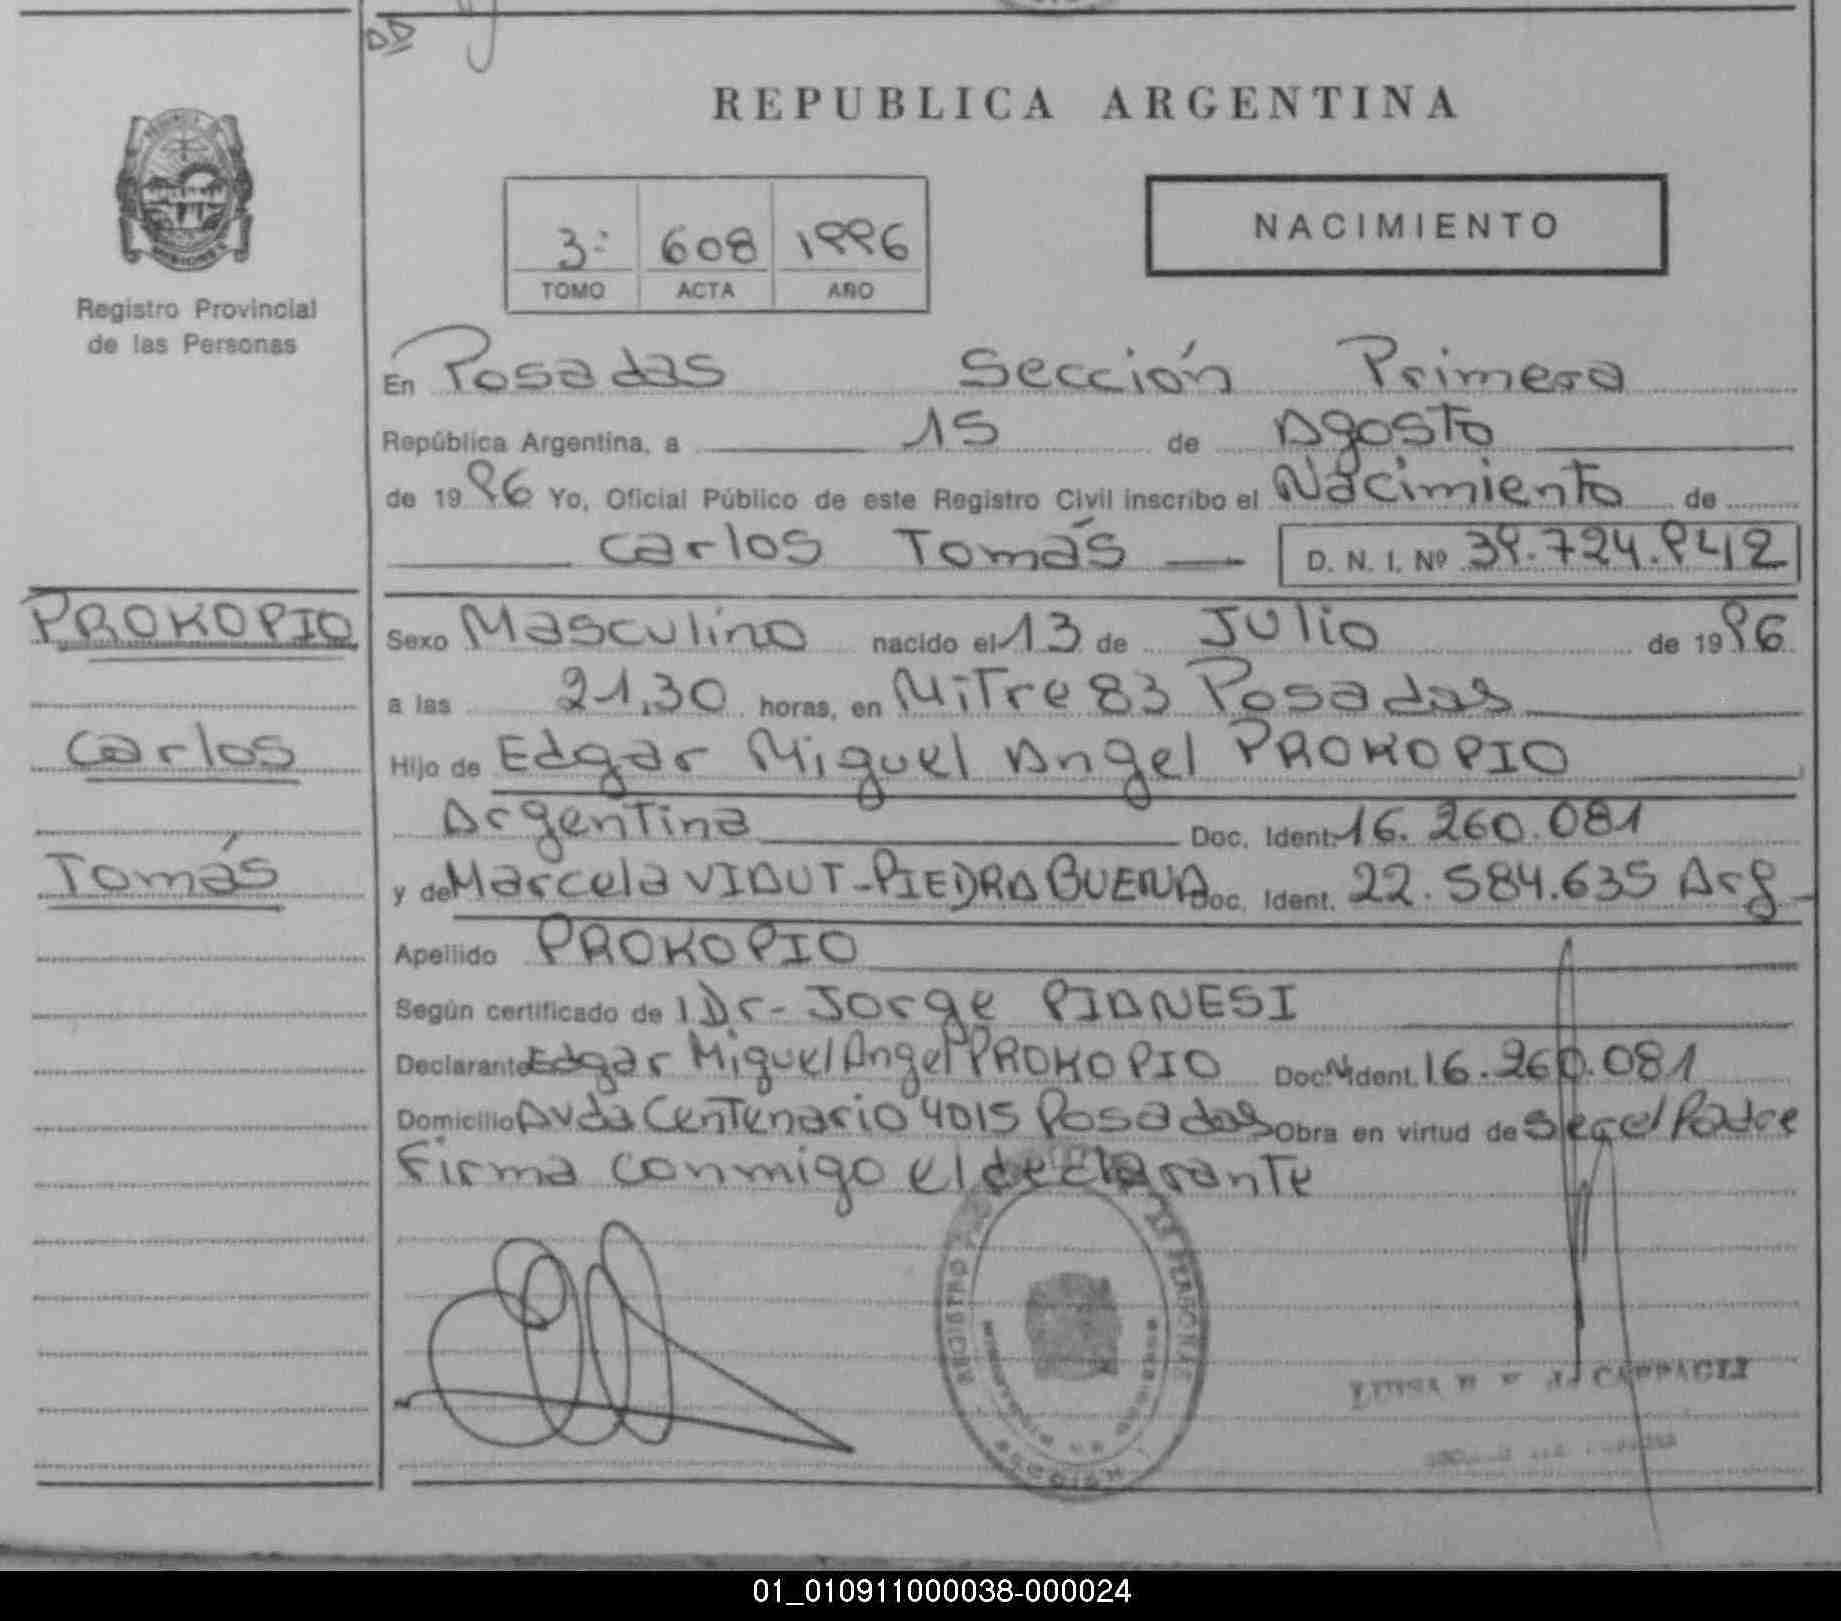 REPUBLICA ARGENTINA
NACIMIENTO
3º 608 1996
TOMO ACTA AÑO
Registro Provincial
de las Personas
En Posadas Sección Primera
República Argentina, a 15 de Agosto
de 1996 Yo, Oficial Público de este Registro Civil inscribo el Nacimiento de
Carlos Tomás D. N. I. Nº 39.724.942
PROKOPIO
Carlos
Tomás
Sexo Masculino nacido el 13 de Julio de 1996
a las 21,30 horas, en Mitre 83 Posadas
Hijo de Edgar Miguel Angel PROKOPIO
Argentina Doc. Ident. 16.260.081
y de Marcela VIDUT-PIEDRABUENA Doc. Ident. 22.584.635 Arg
Apellido PROKOPIO
Según certificado de Dr- Jorge PIANESI
Declarante Edgar Miguel Angel PROKOPIO Doc. Ident. 16.260.081
Domicilio Avda Centenario 4015 Posadas Obra en virtud de ser el Padre
Firma conmigo el declarante
REGISTRO PERSONAS
POSADAS
01_010911000038-000024